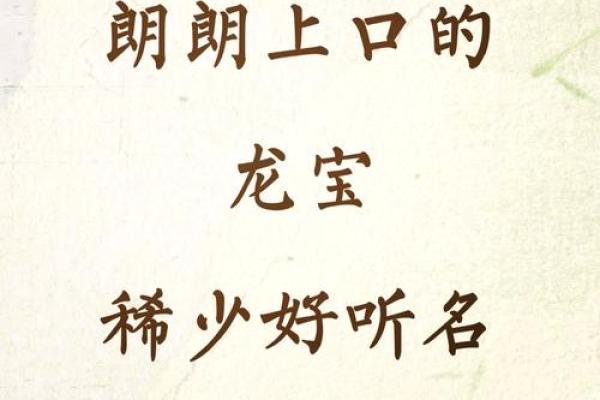 朗朗上口的
龙宝
稀少好听名